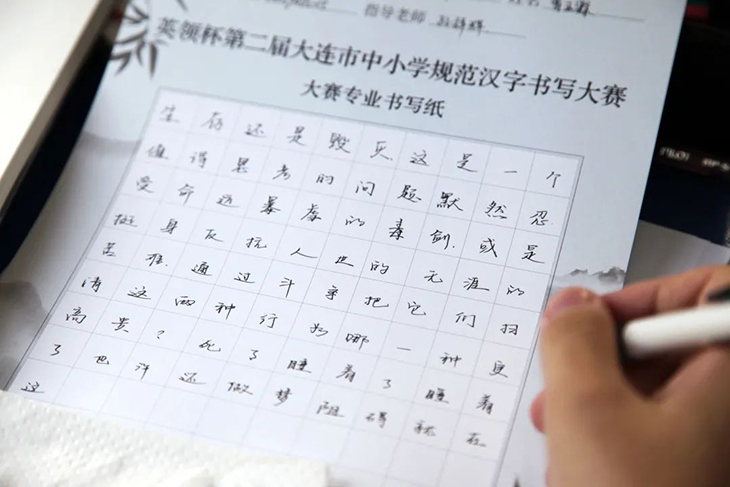 指导老师
英领杯第二届大连市中小学规范汉字书写大赛
大赛专业书写纸
生存还是毁灭，这是一个
值得思考的问题默然忍
受命运暴虐的毒剑，或是
挺身反抗人世的无涯的
苦难，通过斗争把它们扫
清这两种行为哪一种更
高贵？死了睡着了睡着
了也许还做梦阻碍就在
这